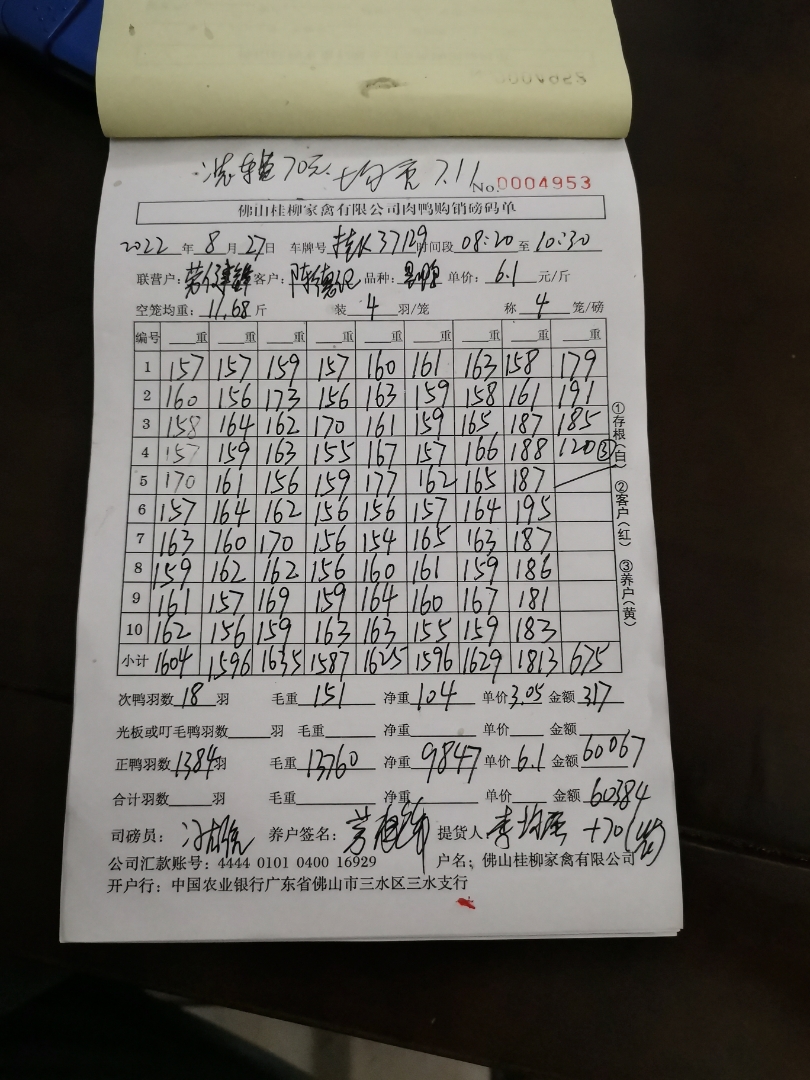 洗车笼70元. 均重 7.11
No.0004953
佛山桂柳家禽有限公司肉鸭购销磅码单
2022年8月27日 车牌号 桂K37129 时间段 08:20 至 10:30
联营户: 客户: 陈德记 品种: 单价: 6.1 元/斤
空笼均重: 11.68 斤 装 4 羽/笼 称 4 笼/磅
编号 重 重 重 重 重 重 重 重 重
1 157 157 159 157 160 161 163 158 179
2 160 156 173 156 163 159 158 161 191
3 158 164 162 170 161 159 165 187 185
4 157 159 163 155 167 157 166 188 120③
5 170 161 156 159 177 162 165 187
6 157 164 162 156 156 157 164 195
7 163 160 170 156 154 165 163 187
8 159 162 162 156 160 161 159 186
9 161 157 169 159 164 160 167 181
10 162 156 159 163 163 155 159 183
小计 1604 1596 1635 1587 1625 1596 1629 1813 675
①存根(白) ②客户(红) ③养户(黄)
次鸭羽数 18 羽 毛重 151 净重 104 单价 3.05 金额 317
光板或叮毛鸭羽数 羽 毛重 净重 单价 金额
正鸭羽数 1384 羽 毛重 13760 净重 9847 单价 6.1 金额 60067
合计羽数 羽 毛重 净重 单价 金额 60384
司磅员: 养户签名: 提货人 +70
公司汇款账号: 4444 0101 0400 16929 户名: 佛山桂柳家禽有限公司
开户行: 中国农业银行广东省佛山市三水区三水支行